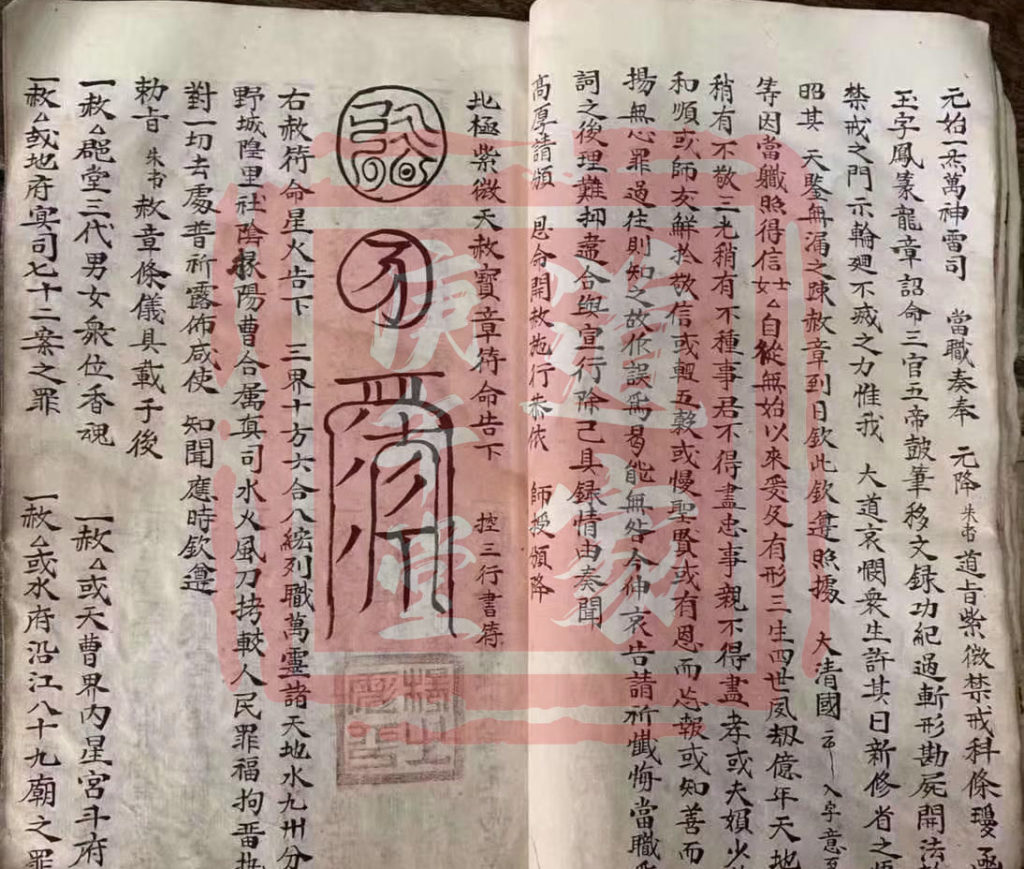 元始一炁萬神雷司　當職奏奉　元降朱书道旨紫微禁戒科條瓊函
玉字鳳篆龍章詔命三官五帝鼓筆移文録功紀過斬形勘屍開法
禁戒之門示輪廻不灭之力惟我　大道哀憫衆生許其日新修省之
昭其　天鑒無漏之疎赦章到日欽此欽遵照據　大清國　入字意至
等因當職照得信士女厶自從無始以來爰及有形三生四世夙劫億年天地
稍有不敬三光稍有不種事君不得盡忠事親不得盡孝或夫婦少
和順或師友鮮於敬信或輕五穀或慢聖賢或有恩而忘報或知善而
揚無心罪過往則知之故作誤爲曷能無咎今伸哀告請祈懺悔當職
詞之後理難抑盡合與宣行除已具録情由奏聞
高厚請頒　恩命開赦施行恭依　師授頒降
北極紫微天赦寶章符命告下　控三行書符
右赦符命星火告下　三界十方六合八紘列職萬靈諸天地水九州分
野城隍里社陰陽曹合属真司水火風刀拷較人民罪福拘
對一切去處普祈露佈咸使　知聞應時欽遵
勅旨　朱书　赦章條儀具載于後
一赦厶郡堂三代男女衆位香魂　一赦厶或天曹界内星宮斗府
一赦厶或地府冥司七十二案之罪　一赦厶或水府沿江八十九廟之罪